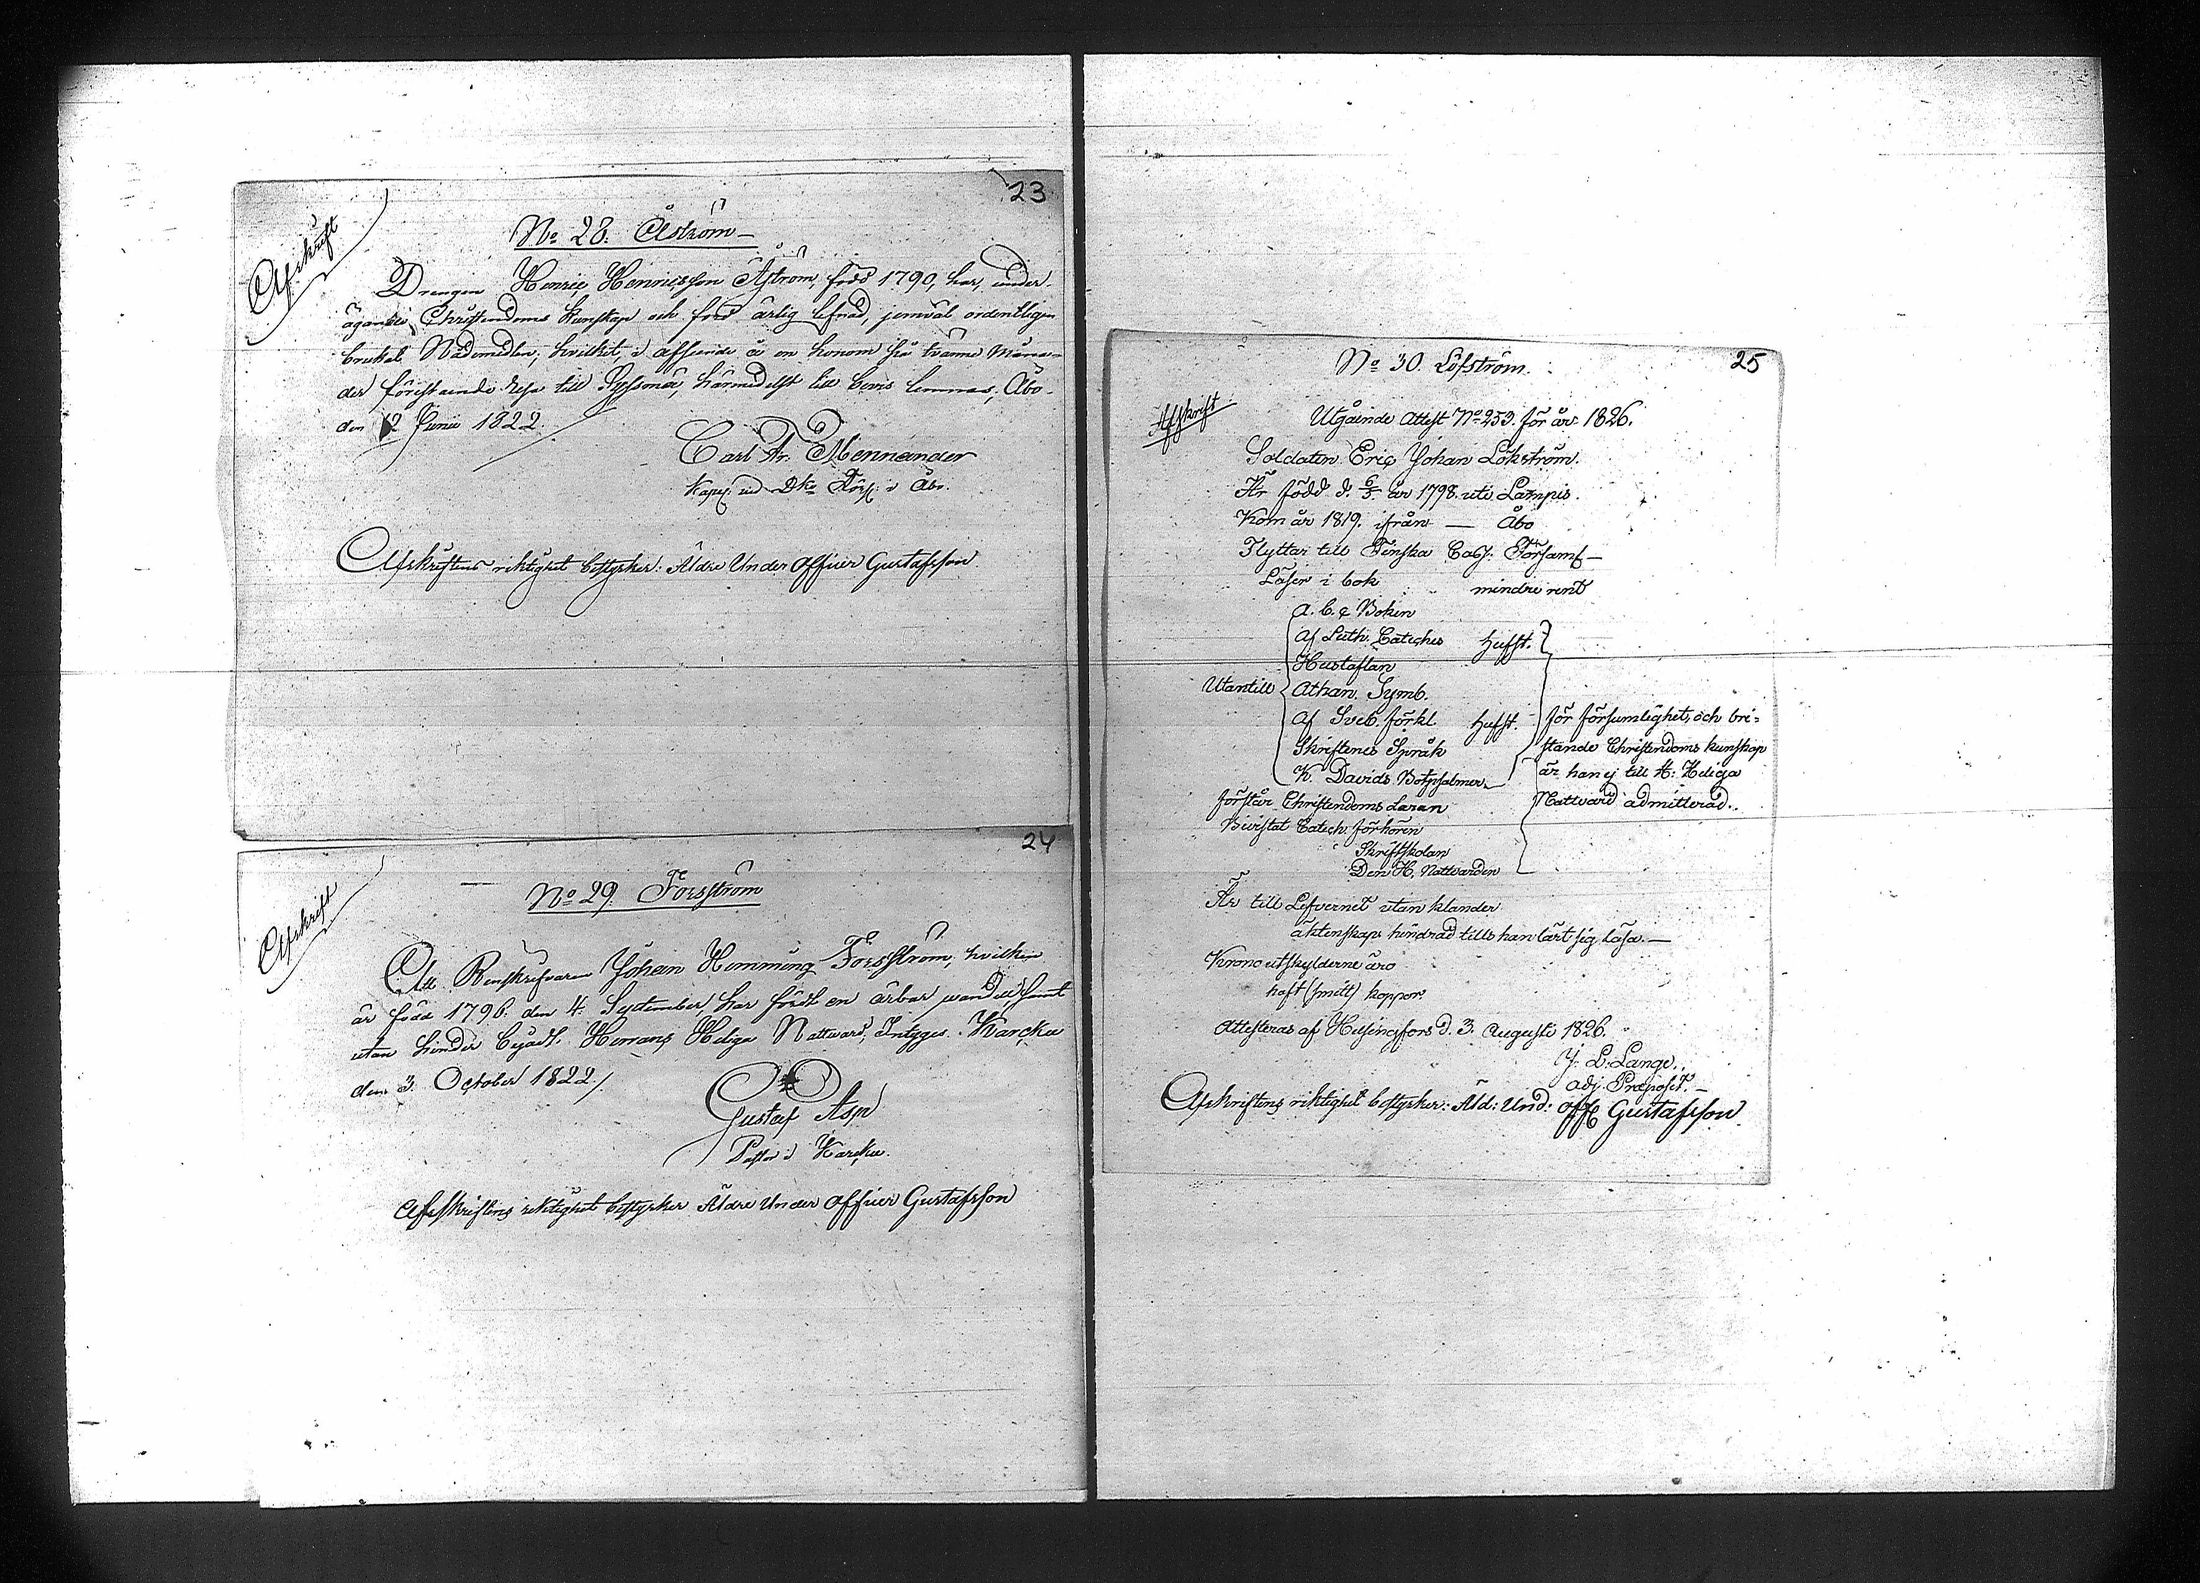 23
Afskrift
No 28. Åström
Drengen Henric Henricsson Åström, född 1790, har, under
ägande Christendoms kunskap och fört ärlig lefnad, jemväl ordentligen
brukat Nådemedlen, hvilket, i afseende å en honom på tvänne Måna-
der förestående resa till Ryssland, härmedelst till bevis lemnas, Åbo
den 12 Junii 1822.
Carl Fr. Mennander
Kapp. vid Församl. i Åbo.
Afskriftens riktighet bestyrker: Äldre Under Officer Gustafsson
24
Afskrift
No 29. Forsström
Att Renskrifvaren Johan Hemming Forsström, hvilken
är född 1796. den 4. September, har fördt en ärbar vandel, samt
utan hinder begådt Herrans Heliga Nattvard, Intygas. Karcku
den 3. October 1822./
Gustaf Asp
Pastor i Karcku.
Afskriftens riktighet bestyrker Äldre Under Officer Gustafsson
25
No 30. Löfström.
Afskrift
Utgående Attest No 253. för år 1826.
Soldaten Eric Johan Lökström.
Är född d. 6/5. år 1798. uti Lampis.
Kom år 1819. ifrån — Åbo
Flyttar till Finska Församl—
Läser i bok mindre rent
Utantill
A. b. c Boken
Af Luth. Cateches hufst.
Hustaflan
Athan. Symb.
Af Sveb. förkl. hufst.
Skriftenes Språk
K. Davids Botpsalmer
för försumlighet, och bri-
stande Christendoms kunskap
är han ej till H: Heliga
Nattvard admitterad.
förstår Christendoms Läran
Bivistat Catech. förhören
Skriftskolan
Den H. Nattvarden
Är till Lefvernet utan klander
äktenskap hindrad tills han lärt sig läsa.—
Krono utskylderne äro
haft (smitt) koppor
Attesteras af Helsingfors d. 3. Augusti 1826.
J. L. Lange.
Adj. Præposit.
Afskriftens riktighet bestyrker: Äld: Und: Off Gustafsson.